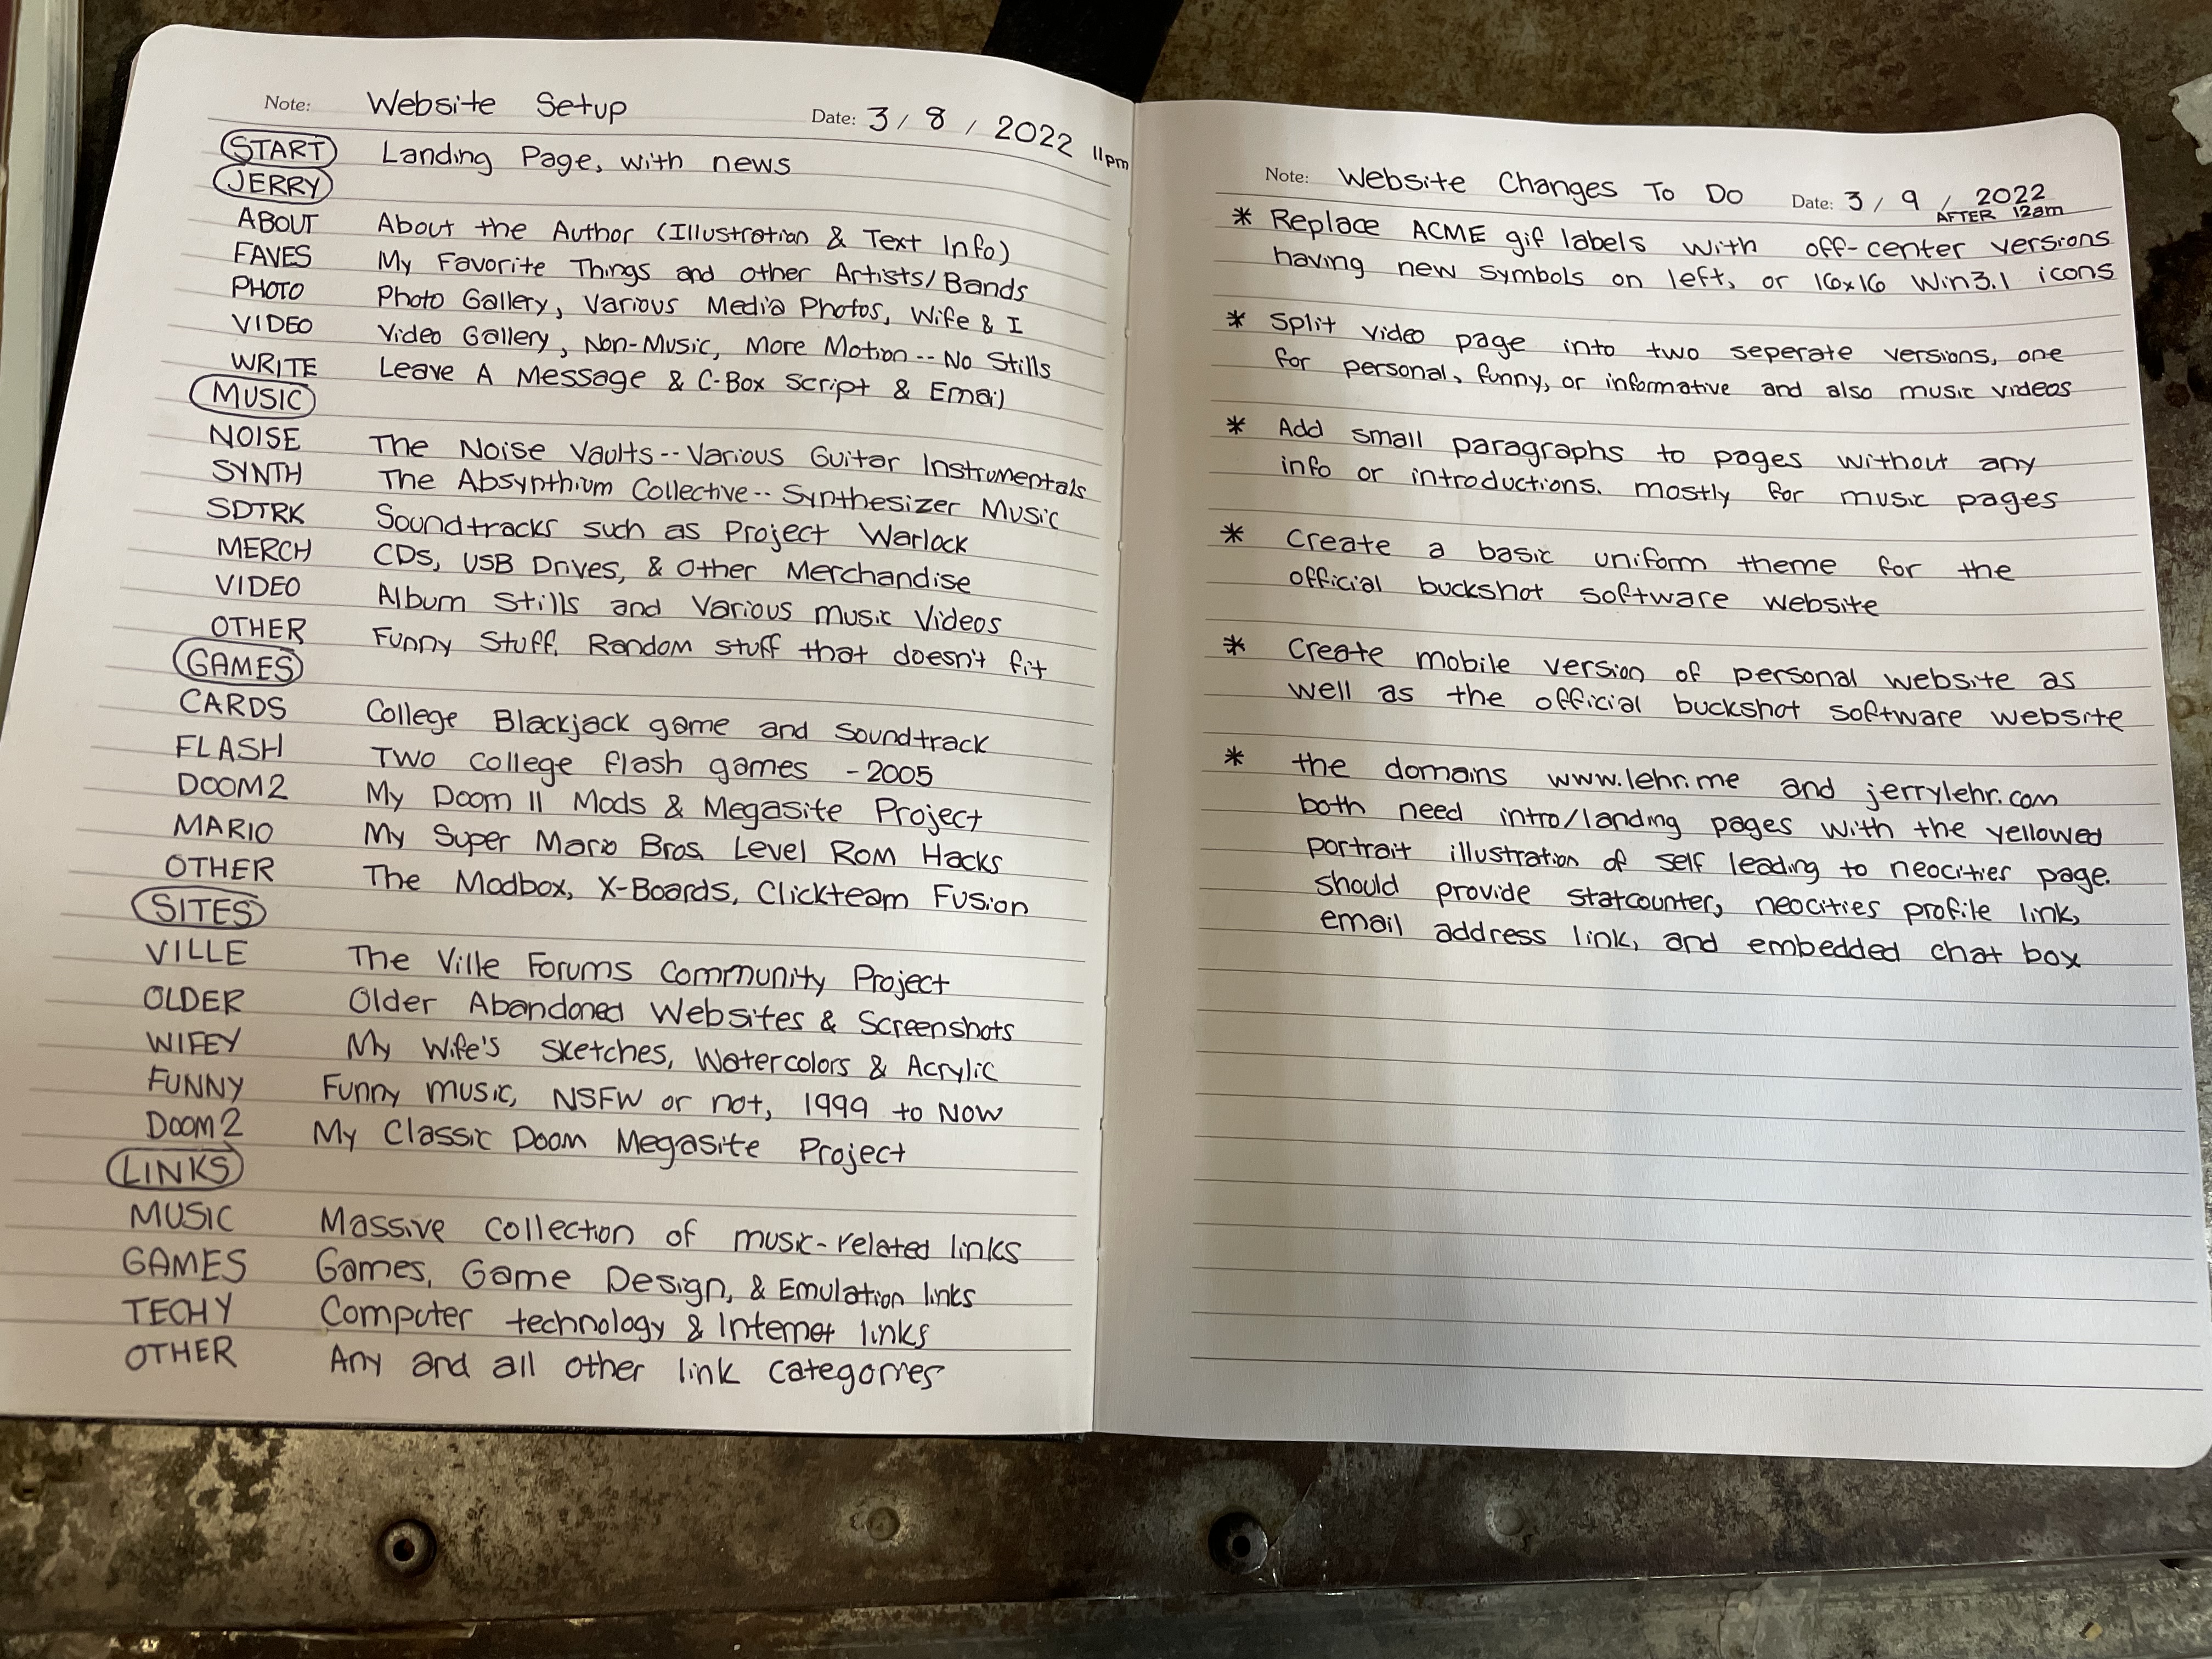 Note: Website Setup Date: 3 / 8 / 2022 11pm
START Landing Page, with news
JERRY
ABOUT About the Author (Illustration & Text Info)
FAVES My Favorite Things and other Artists/Bands
PHOTO Photo Gallery, Various Media Photos, Wife & I
VIDEO Video Gallery, Non-Music, More Motion -- No Stills
WRITE Leave A Message & C-Box Script & Email
MUSIC
NOISE The Noise Vaults -- Various Guitar Instrumentals
SYNTH The Absynthium Collective -- Synthesizer Music
SDTRK Soundtracks such as Project Warlock
MERCH CDs, USB Drives, & Other Merchandise
VIDEO Album Stills and Various Music Videos
OTHER Funny Stuff, Random stuff that doesn't fit
GAMES
CARDS College Blackjack game and Soundtrack
FLASH Two college flash games - 2005
DOOM2 My Doom II Mods & Megasite Project
MARIO My Super Mario Bros. Level Rom Hacks
OTHER The Modbox, X-Boards, Clickteam Fusion
SITES
VILLE The Ville Forums Community Project
OLDER Older Abandoned Websites & Screenshots
WIFEY My Wife's Sketches, Watercolors & Acrylic
FUNNY Funny music, NSFW or not, 1999 to Now
DOOM2 My Classic Doom Megasite Project
LINKS
MUSIC Massive collection of music-related links
GAMES Games, Game Design, & Emulation links
TECHY Computer technology & Internet links
OTHER Any and all other link categories
Note: Website Changes To Do Date: 3 / 9 / 2022
AFTER 12am
* Replace ACME gif labels with off-center versions
having new symbols on left, or 16x16 Win3.1 icons
* Split video page into two seperate versions, one
for personal, funny, or informative and also music videos
* Add small paragraphs to pages without any
info or introductions. mostly for music pages
* Create a basic uniform theme for the
official buckshot software website
* Create mobile version of personal website as
well as the official buckshot software website
* the domains www.lehr.me and jerrylehr.com
both need intro/landing pages with the yellowed
portrait illustration of self leading to neocities page.
should provide statcounter, neocities profile link,
email address link, and embedded chat box